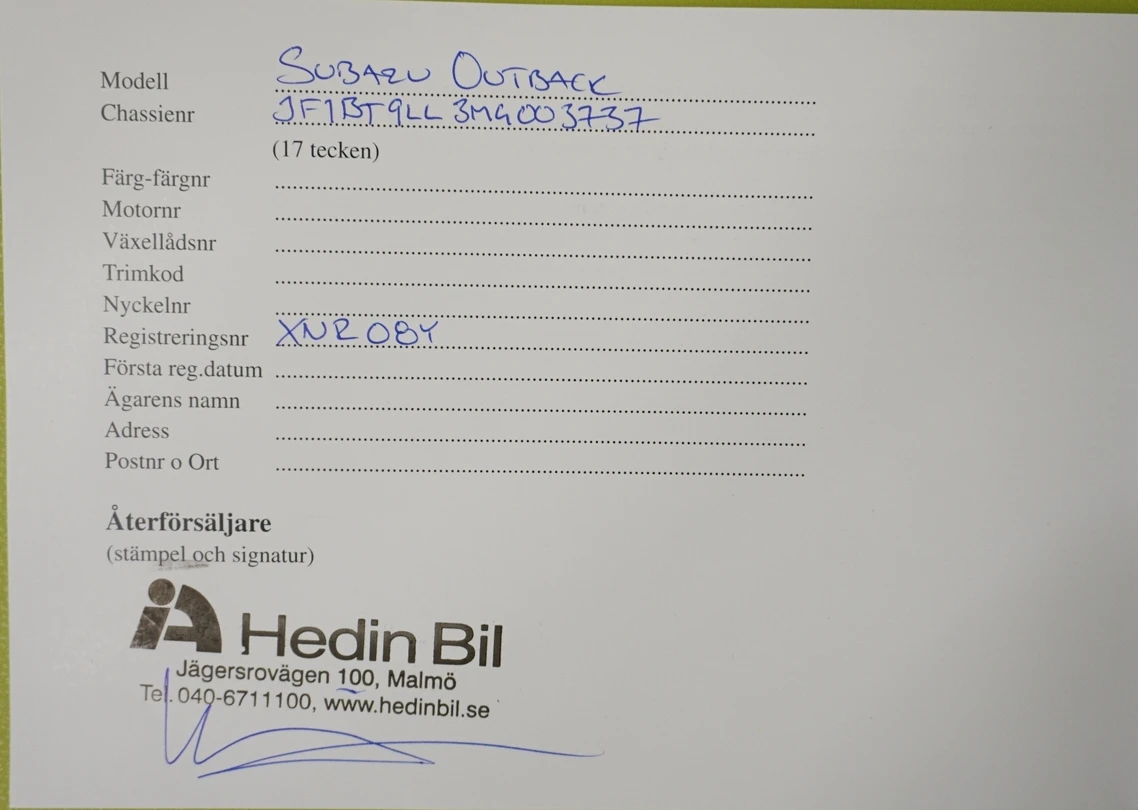 Modell SUBARU OUTBACK
Chassienr JF1BT9LL3MG003737
(17 tecken)
Färg-färgnr
Motornr
Växellådsnr
Trimkod
Nyckelnr
Registreringsnr XNR 08Y
Första reg.datum
Ägarens namn
Adress
Postnr o Ort
Återförsäljare
(stämpel och signatur)
Hedin Bil
Jägersrovägen 100, Malmö
Tel. 040-6711100, www.hedinbil.se